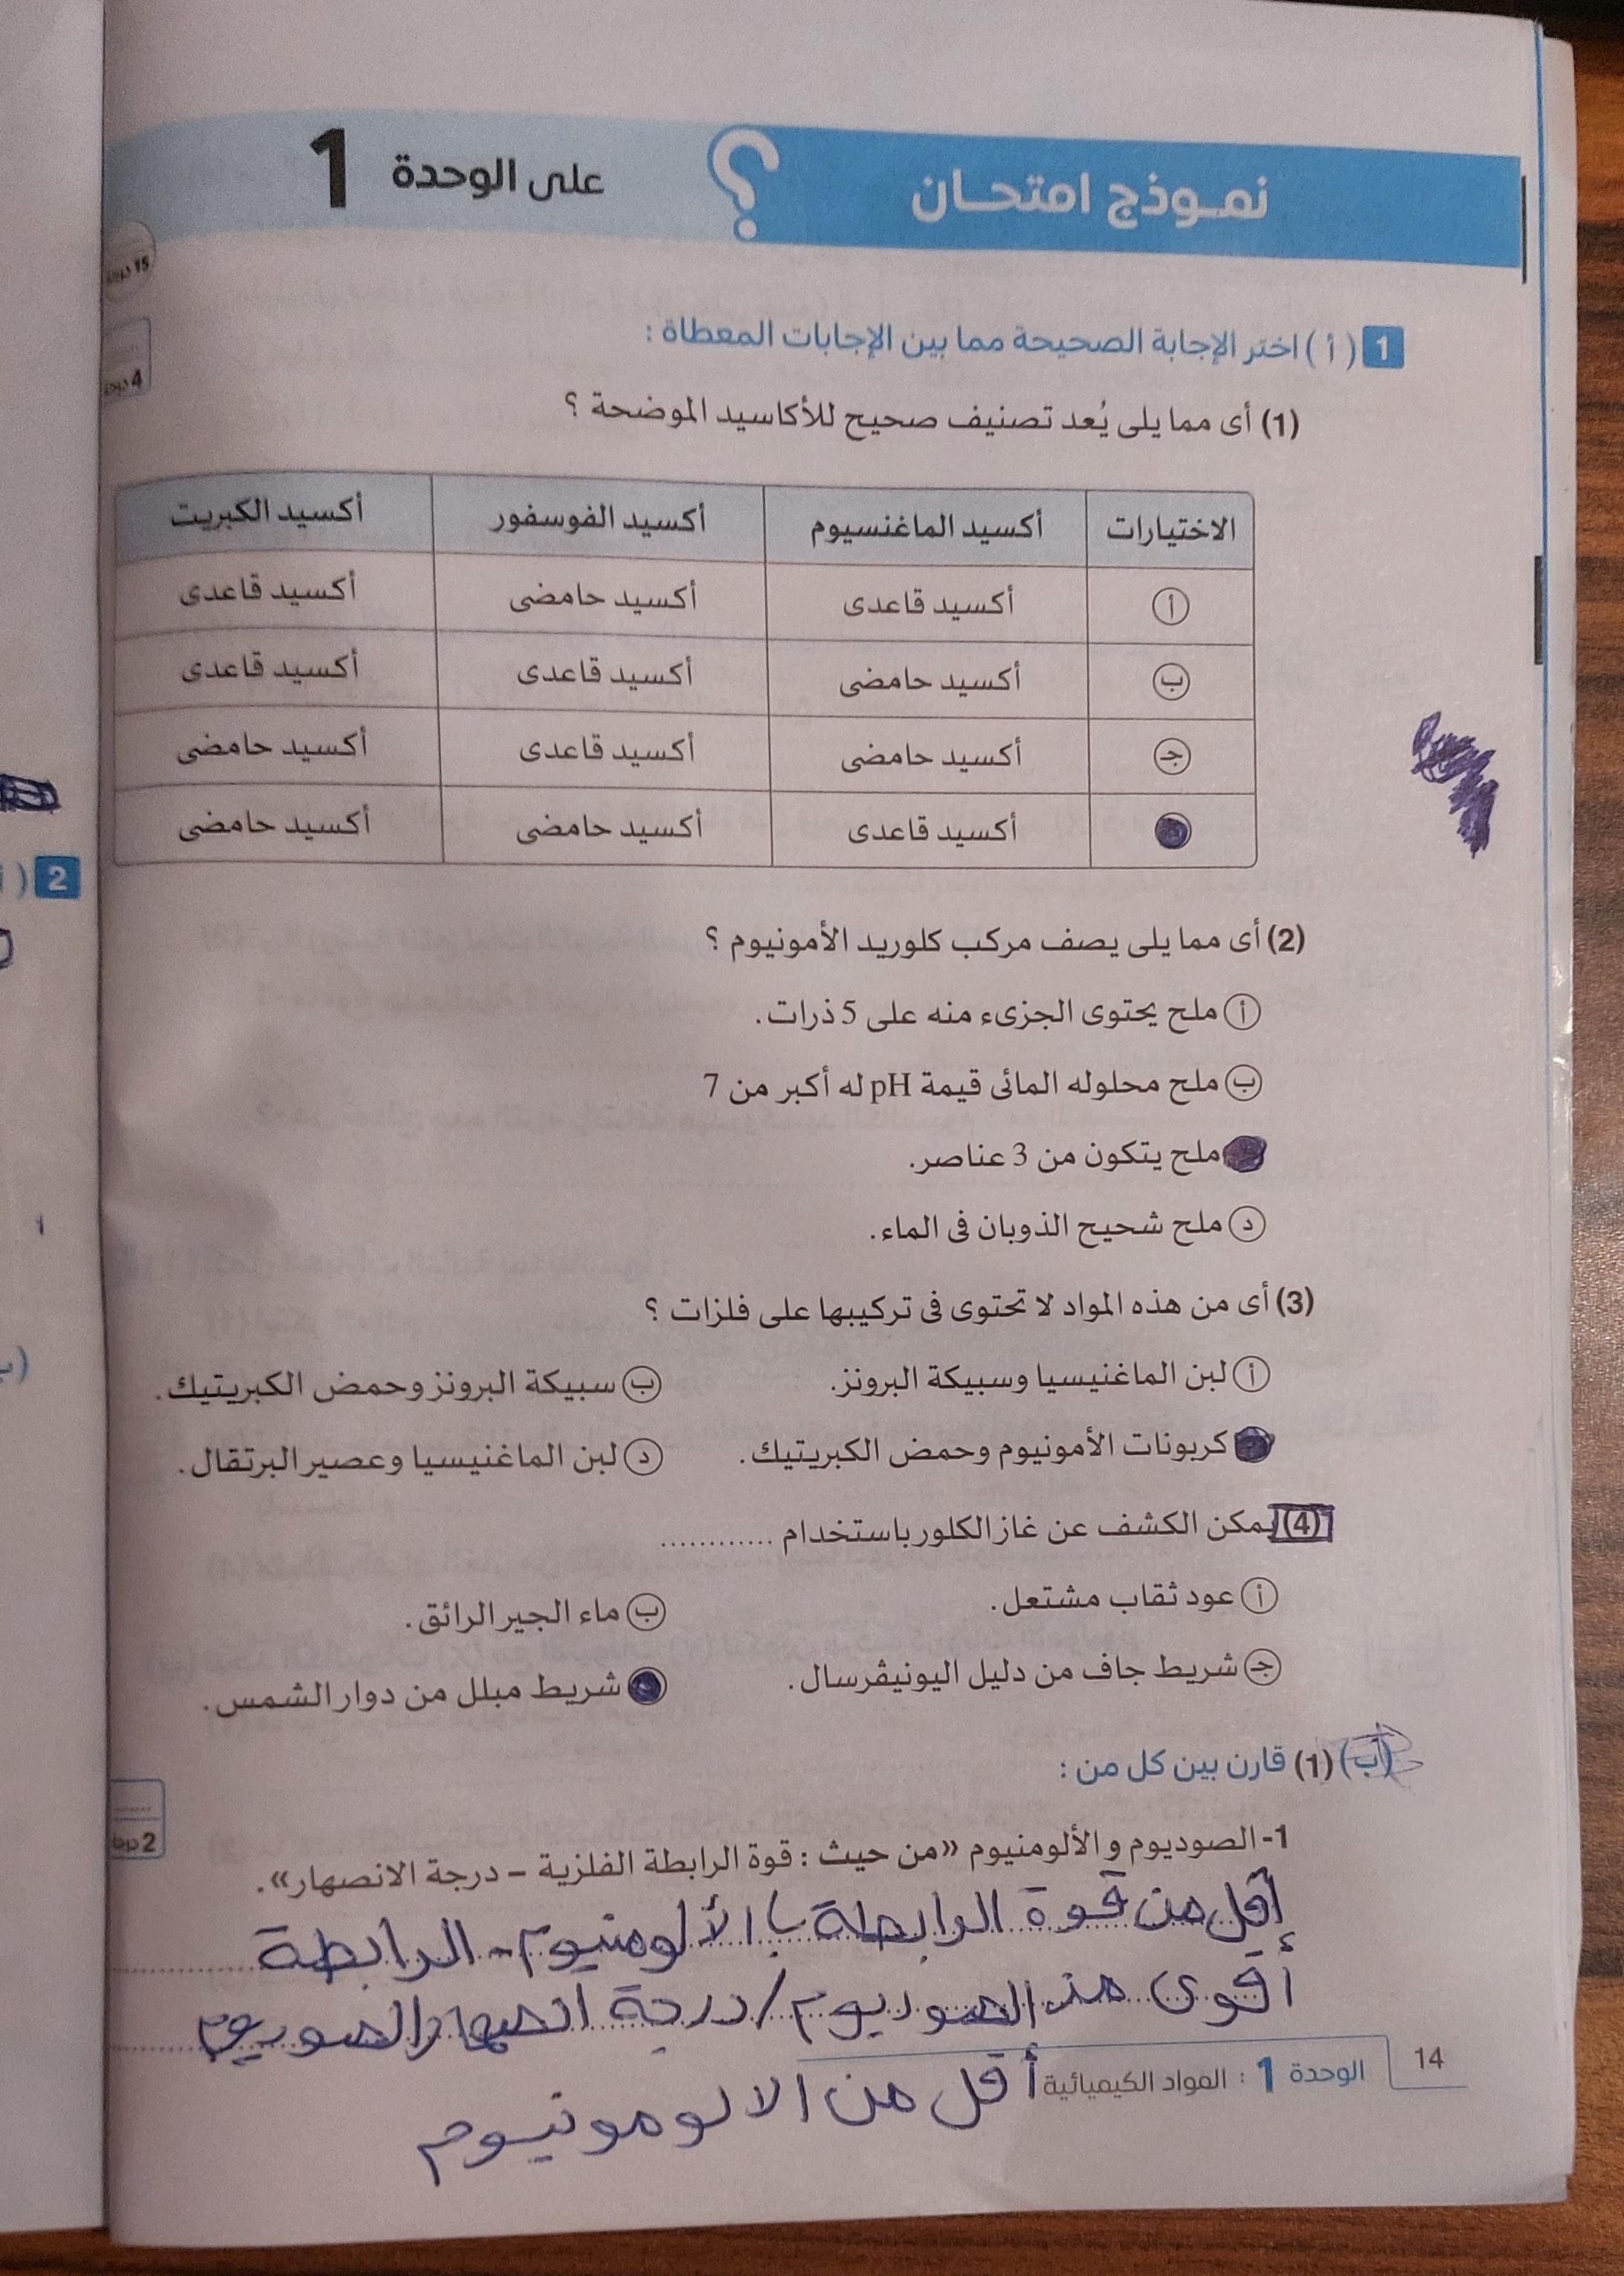 نموذج امتحان ؟ على الوحدة 1
15 درجة
1 ( أ ) اختر الإجابة الصحيحة مما بين الإجابات المعطاة :
4 درجة
(1) أى مما يلى يُعد تصنيف صحيح للأكاسيد الموضحة ؟
الاختيارات أكسيد الماغنسيوم أكسيد الفوسفور أكسيد الكبريت
أ أكسيد قاعدى أكسيد حامضى أكسيد قاعدى
ب أكسيد حامضى أكسيد قاعدى أكسيد قاعدى
جـ أكسيد حامضى أكسيد قاعدى أكسيد حامضى
أكسيد قاعدى أكسيد حامضى أكسيد حامضى
(2) أى مما يلى يصف مركب كلوريد الأمونيوم ؟
أ ملح يحتوى الجزىء منه على 5 ذرات.
ب ملح محلوله المائى قيمة pH له أكبر من 7
ملح يتكون من 3 عناصر.
د ملح شحيح الذوبان فى الماء.
(3) أى من هذه المواد لا تحتوى فى تركيبها على فلزات ؟
أ لبن الماغنيسيا وسبيكة البرونز.
ب سبيكة البرونز وحمض الكبريتيك.
كربونات الأمونيوم وحمض الكبريتيك.
د لبن الماغنيسيا وعصير البرتقال.
(4) يمكن الكشف عن غاز الكلور باستخدام ............
أ عود ثقاب مشتعل.
ب ماء الجير الرائق.
جـ شريط جاف من دليل اليونيڤرسال.
شريط مبلل من دوار الشمس.
(ب) (1) قارن بين كل من :
2 درجة
1- الصوديوم والألومنيوم «من حيث : قوة الرابطة الفلزية – درجة الانصهار».
أقل من قوة الرابطة بالألومنيوم - الرابطة
أقوى من الصوديوم / درجة انصهار الصوديوم
أقل من الالومونيوم
14 الوحدة 1 : المواد الكيميائية
2